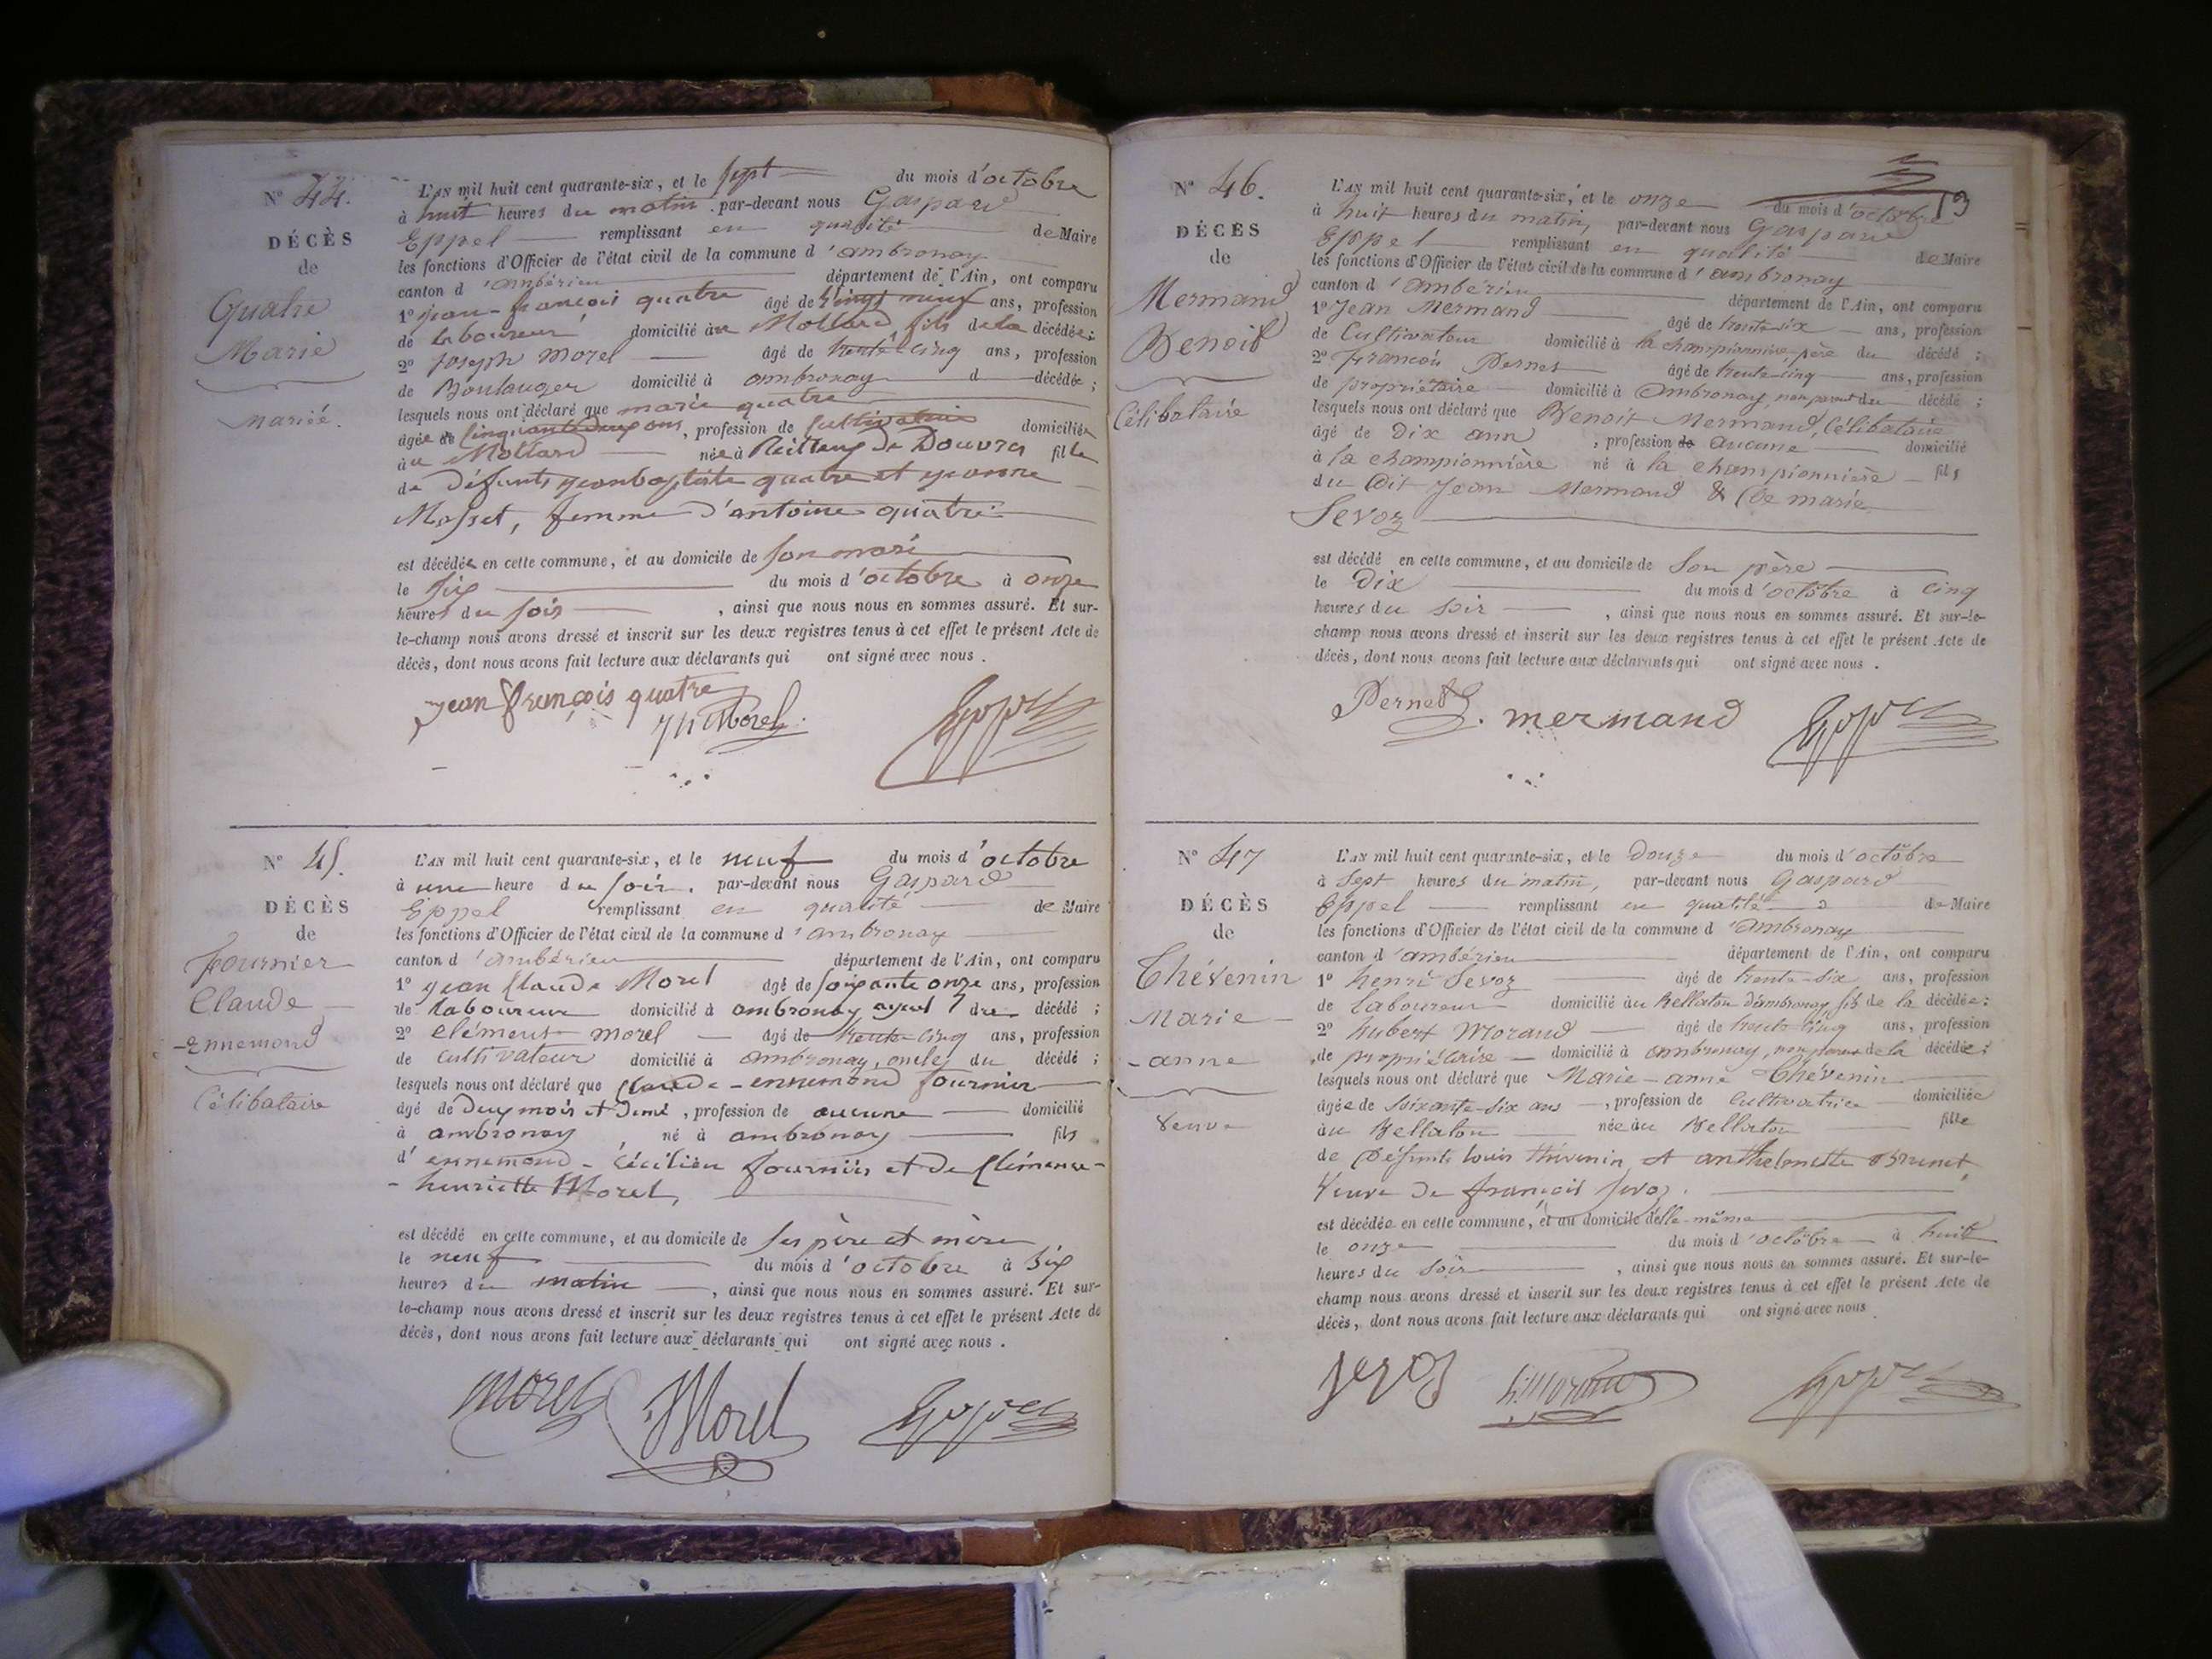 N° 44.
DÉCÈS
de
Quatre
Marie
mariée.
L'AN mil huit cent quarante-six, et le sept du mois d'octobre
à huit heures du matin. par-devant nous Gaspard
Eppel remplissant en qualité de Maire
les fonctions d'Officier de l'état civil de la commune d'ambronay
canton d'ambérieu département de l'Ain, ont comparu
1° jean-françois quatre âgé de vingt neuf ans, profession
de laboureur domicilié au Mollard, fils de la décédée;
2° joseph morel âgé de trente cinq ans, profession
de Boulanger domicilié à ambronay d décédée;
lesquels nous ont déclaré que marie quatre
âgée de cinquante deux ans, profession de cultivatrice domiciliée
au Mollard née à de Douvres fille
de défunts jeanbaptiste quatre et jeanne
Masset, femme d'antoine quatre
est décédée en cette commune, et au domicile de son mari
le six du mois d'octobre à onze
heures du soir, ainsi que nous nous en sommes assuré. Et sur-
le-champ nous avons dressé et inscrit sur les deux registres tenus à cet effet le présent Acte de
décès, dont nous avons fait lecture aux déclarants qui ont signé avec nous.
jean françois quatre
Jh Morel
Eppel
N° 45.
DÉCÈS
de
Fournier
Claude
-Ennemond
Célibataire
L'AN mil huit cent quarante-six, et le neuf du mois d'octobre
à une heure du soir. par-devant nous Gaspard
Eppel remplissant en qualité de Maire
les fonctions d'Officier de l'état civil de la commune d'ambronay
canton d'ambérieu département de l'Ain, ont comparu
1° jean Claude Morel âgé de soixante onze ans, profession
de laboureur domicilié à ambronay ayeul du décédé;
2° clément morel âgé de trente-cinq ans, profession
de cultivateur domicilié à ambronay, oncle du décédé;
lesquels nous ont déclaré que Claude-ennemond fournier
âgé de deux mois et demi, profession de aucune domicilié
à ambronay, né à ambronay fils
d'ennemond-cécilien fournier et de Clémence-
-henriette Morel,
est décédé en cette commune, et au domicile de ses père et mère
le neuf du mois d'octobre à six
heures du matin, ainsi que nous nous en sommes assuré. Et sur-
le-champ nous avons dressé et inscrit sur les deux registres tenus à cet effet le présent Acte de
décès, dont nous avons fait lecture aux déclarants qui ont signé avec nous.
morel Morel Eppel
13
N° 46.
DÉCÈS
de
Mermand
Benoit
Célibataire
L'AN mil huit cent quarante-six, et le onze du mois d'octobre
à huit heures du matin, par-devant nous Gaspard
Eppel remplissant en qualité de Maire
les fonctions d'Officier de l'état civil de la commune d'ambronay
canton d'ambérieu département de l'Ain, ont comparu
1° Jean Mermand âgé de trente-six ans, profession
de Cultivateur domicilié à la championnière père du décédé;
2° françois Pernet âgé de trente-cinq ans, profession
de propriétaire domicilié à Ambronay, non parent du décédé;
lesquels nous ont déclaré que Benoit Mermand, Célibataire
âgé de Dix ans, profession de aucune domicilié
à la championnière né à la championnière fils
du dit Jean Mermand & de marie
Sevoz
est décédé en cette commune, et au domicile de Son père
le Dix du mois d'octobre à cinq
heures du Soir, ainsi que nous nous en sommes assuré. Et sur-le-
champ nous avons dressé et inscrit sur les deux registres tenus à cet effet le présent Acte de
décès, dont nous avons fait lecture aux déclarants qui ont signé avec nous.
Pernet. mermand Eppel
N° 47
DÉCÈS
de
Thévenin
Marie
-anne
Veuve
L'AN mil huit cent quarante-six, et le Douze du mois d'octobre
à Sept heures du matin, par-devant nous Gaspard
Eppel remplissant en qualité de Maire
les fonctions d'Officier de l'état civil de la commune d'ambronay
canton d'ambérieu département de l'Ain, ont comparu
1° henri Sevoz âgé de trente-six ans, profession
de laboureur domicilié au Bellaton d'ambronay fils de la décédée;
2° hubert Morand âgé de trente-cinq ans, profession
de propriétaire domicilié à ambronay, non parent de la décédée;
lesquels nous ont déclaré que Marie-anne Thévenin
âgée de soixante-six ans, profession de Cultivatrice domiciliée
au Bellaton née au Bellaton fille
de Défunts louis thévenin et anthelmette Brunet,
Veuve de françois Sevoz.
est décédée en cette commune, et au domicile d'elle-même
le onze du mois d'octobre à huit
heures du Soir, ainsi que nous nous en sommes assuré. Et sur-le-
champ nous avons dressé et inscrit sur les deux registres tenus à cet effet le présent Acte de
décès, dont nous avons fait lecture aux déclarants qui ont signé avec nous
sevoz h. morand Eppel